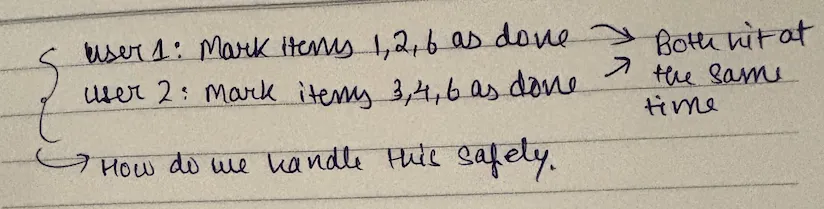 user 1: Mark items 1,2,6 as done
user 2: mark items 3,4,6 as done
Both hit at
the same
time
How do we handle this safely.